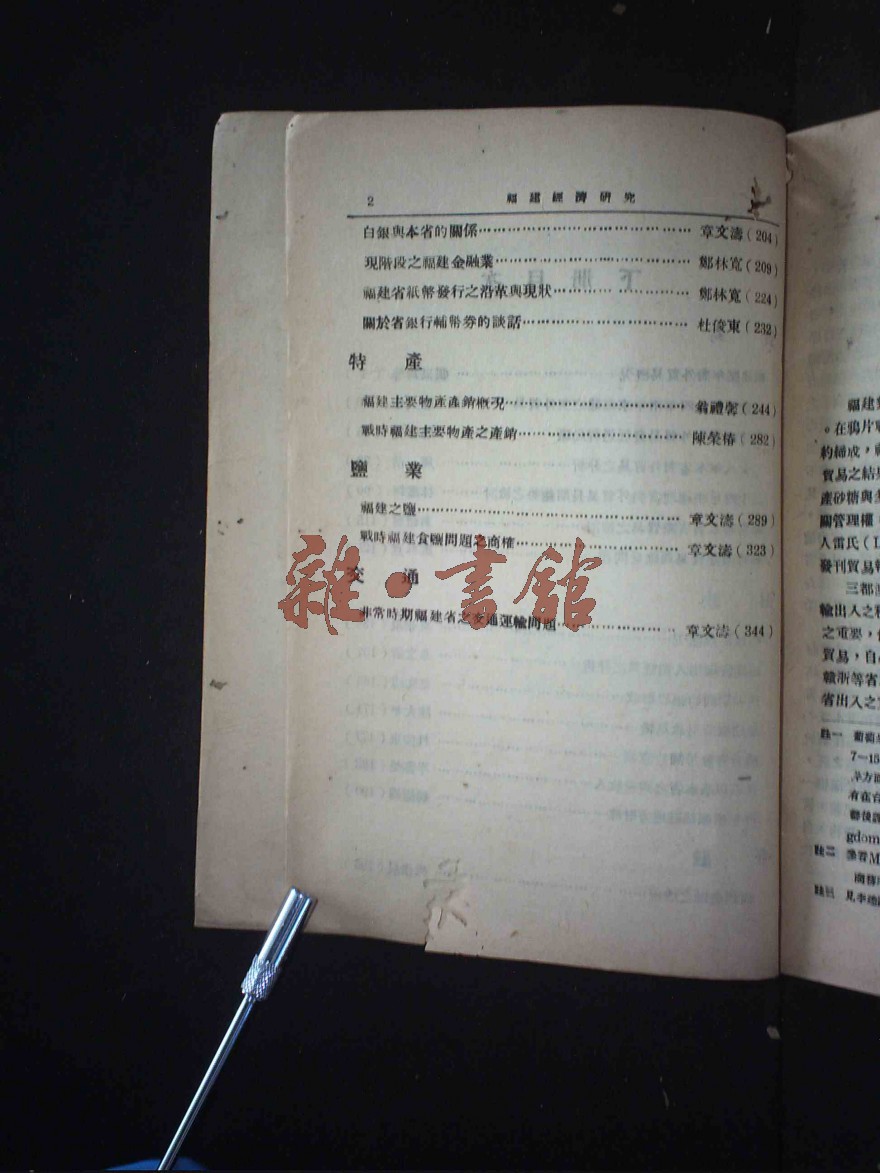 2
福建經濟研究
白銀與本省的關係……………………………… 章文濤(204)
現階段之福建金融業…………………………… 鄭林寬(209)
福建省紙幣發行之沿革與現狀………………… 鄭林寬(224)
關於省銀行輔幣券的談話……………………… 杜俊東(232)
特產
福建主要物產產銷概況………………………… 翁禮馨(244)
戰時福建主要物產之產銷……………………… 陳榮椿(282)
鹽業
福建之鹽………………………………………… 章文濤(289)
戰時福建食鹽問題之商榷……………………… 章文濤(323)
交通
非常時期福建省之交通運輸問題……………… 章文濤(344)
雜·書館
福建
。在鴉片
約締成，
貿易之結
產砂糖與
關管理權
人雷氏(
發刊貿易
三都
輸出入之
之重要，
貿易，自
贛浙等省
省出入之
註一 葡萄
7—15
有在台
gdom
註二 參看M
註三 見李